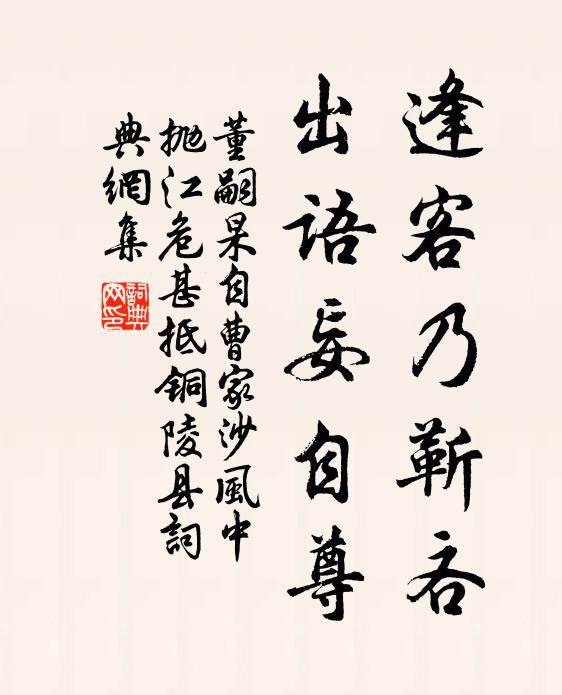 逢客乃靳吝
出语妄自尊
董嗣杲自曹家沙風中
抛江危甚抵铜陵县詞
典網集
詞典网印